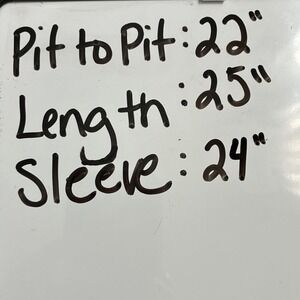 Pit to Pit: 22"
Length: 25"
Sleeve: 24"